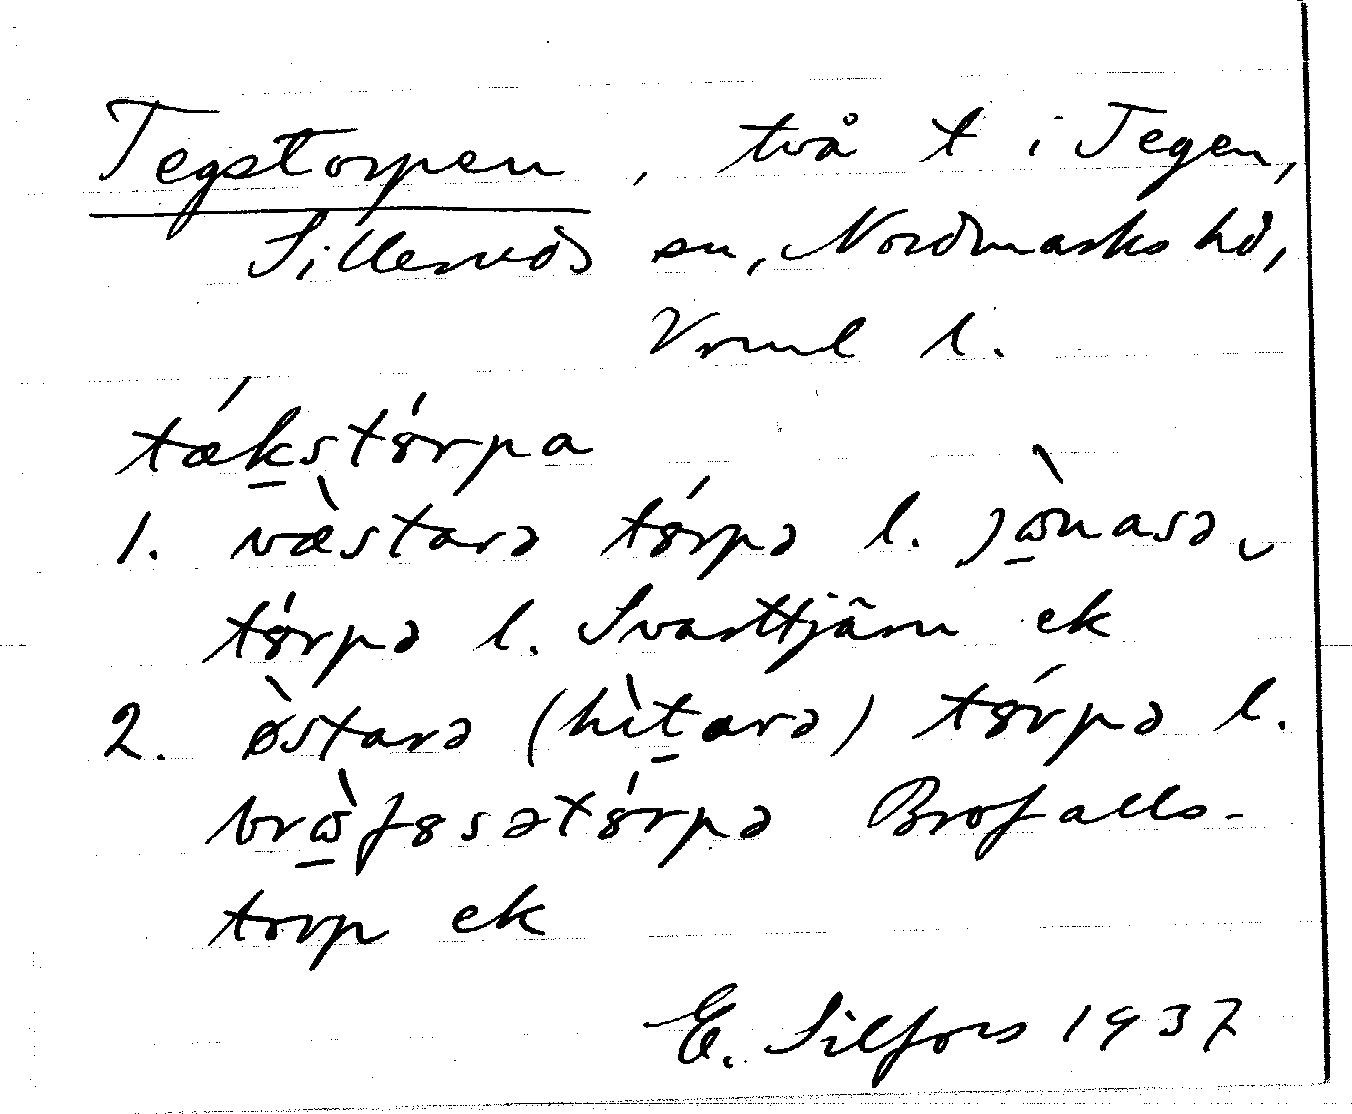 Tegstorpen, två t i Tegen,
Silleruds sn, Nordmarks hd,
Vrml l.
tǽk̲stórpa
1. væ̀starə tórpə l. jὼ̲nasə‿
tórpə l. Svarttjärn ek
2. ø̀starə (hìt̲arə) tórpə l.
brὼ̲fasətórpə Brofalls-
torp ek
E. Silfors 1937